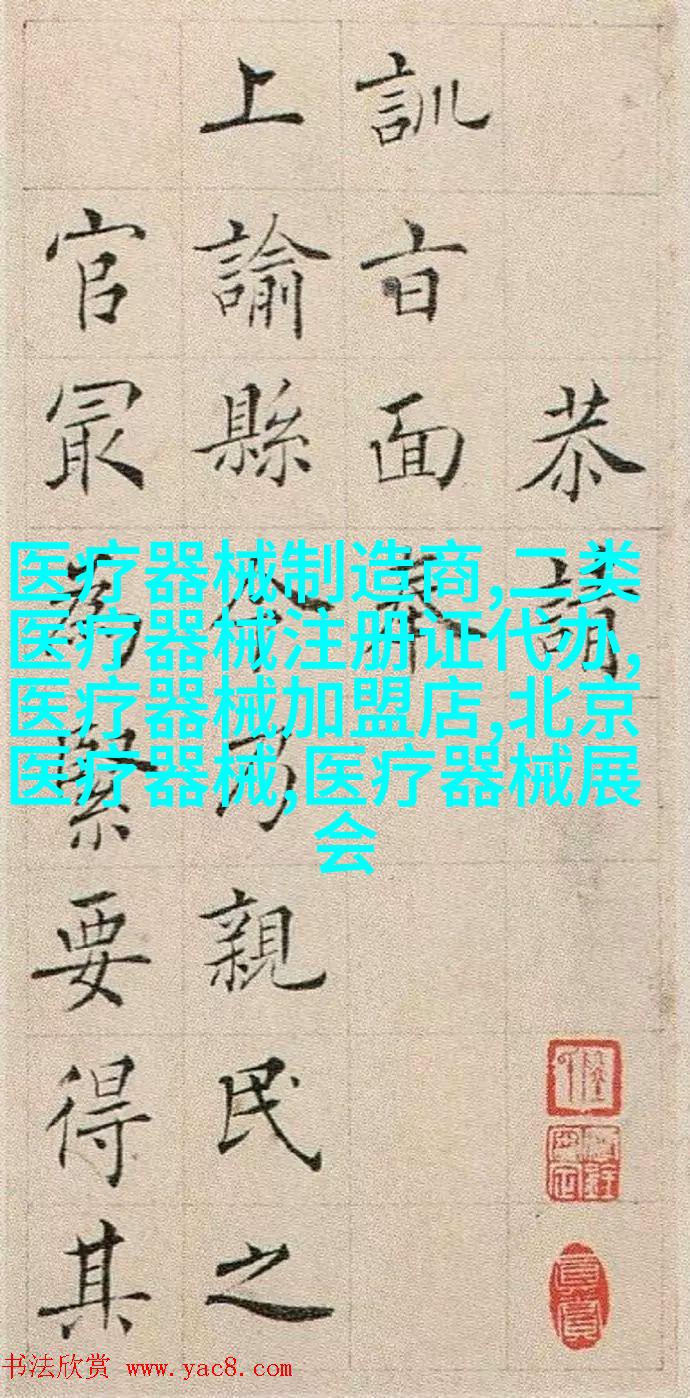 恭請
訓旨面奉
上諭縣令乃親民之
官最為緊要得其
医疗器械制造商,二类
医疗器械注册证代办,
医疗器械加盟店,北京
医疗器械,医疗器械展
会
书法欣赏 www.yac8.com